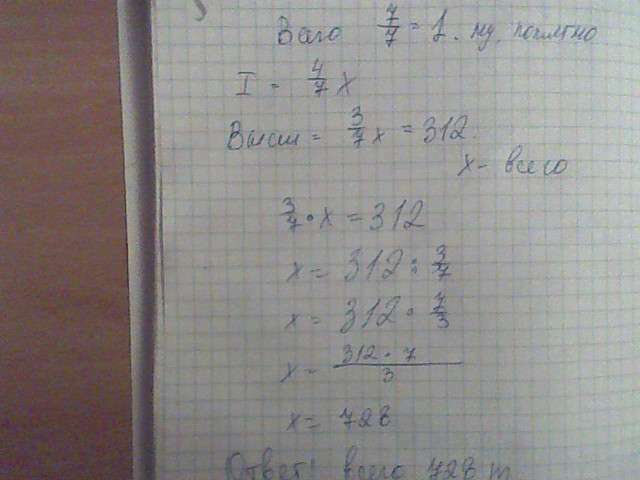 Всего 7/7 = 1. ну, понятно
I = 4/7 x
Высш = 3/7 x = 312.
x - всего
3/7 · x = 312
x = 312 : 3/7
x = 312 · 7/3
x = 312 · 7 / 3
x = 728
Ответ: всего 728 т